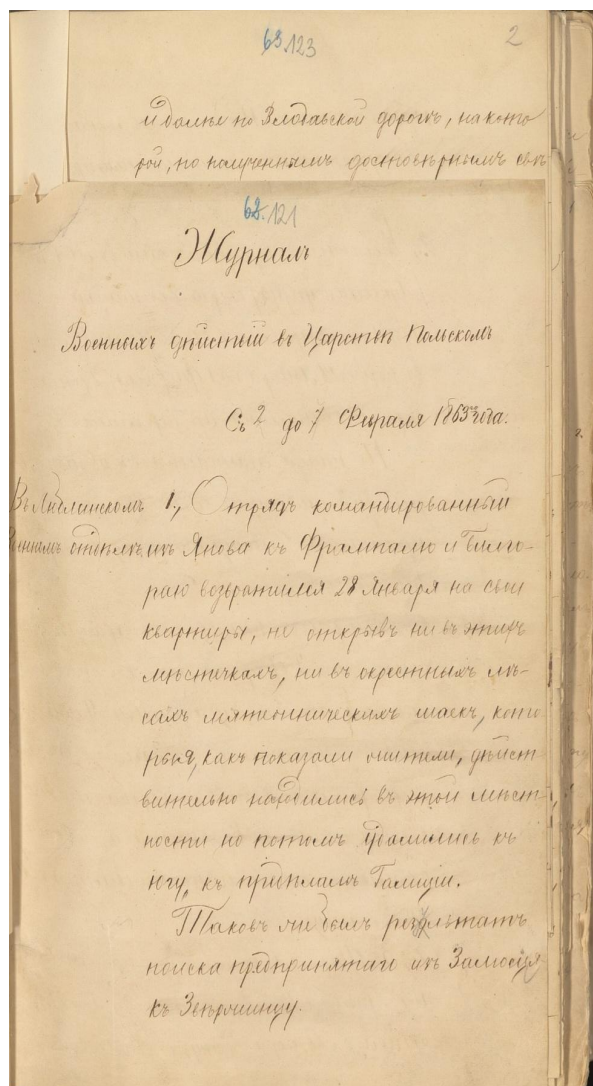 63.123 2
и далѣе по Влодавской дорогѣ, на кото
рой, по полученнымъ достовѣрнымъ свѣ
62.121
Журналъ
Военныхъ дѣйствій въ Царствѣ Польскомъ
Съ 2 до 7 Февраля 1863 года.
Въ Люблинскомъ 1., Отрядъ командированный
Военномъ отдѣлѣ. изъ Янова къ Фрамполю и Билго-
раю возвратился 28 Января на свои
квартиры, не открывъ ни въ этихъ
мѣстечкахъ, ни въ окрестныхъ лѣ-
сахъ мятежническихъ шаекъ, кото
рыя, какъ показали жители, дѣйст
вительно находились въ этой мѣст-
ности но потомъ удалились къ
югу, къ предѣламъ Галиціи.
Таковъ же былъ результатъ
поиска предпринятаго изъ Замосця
къ Звѣржинцу.